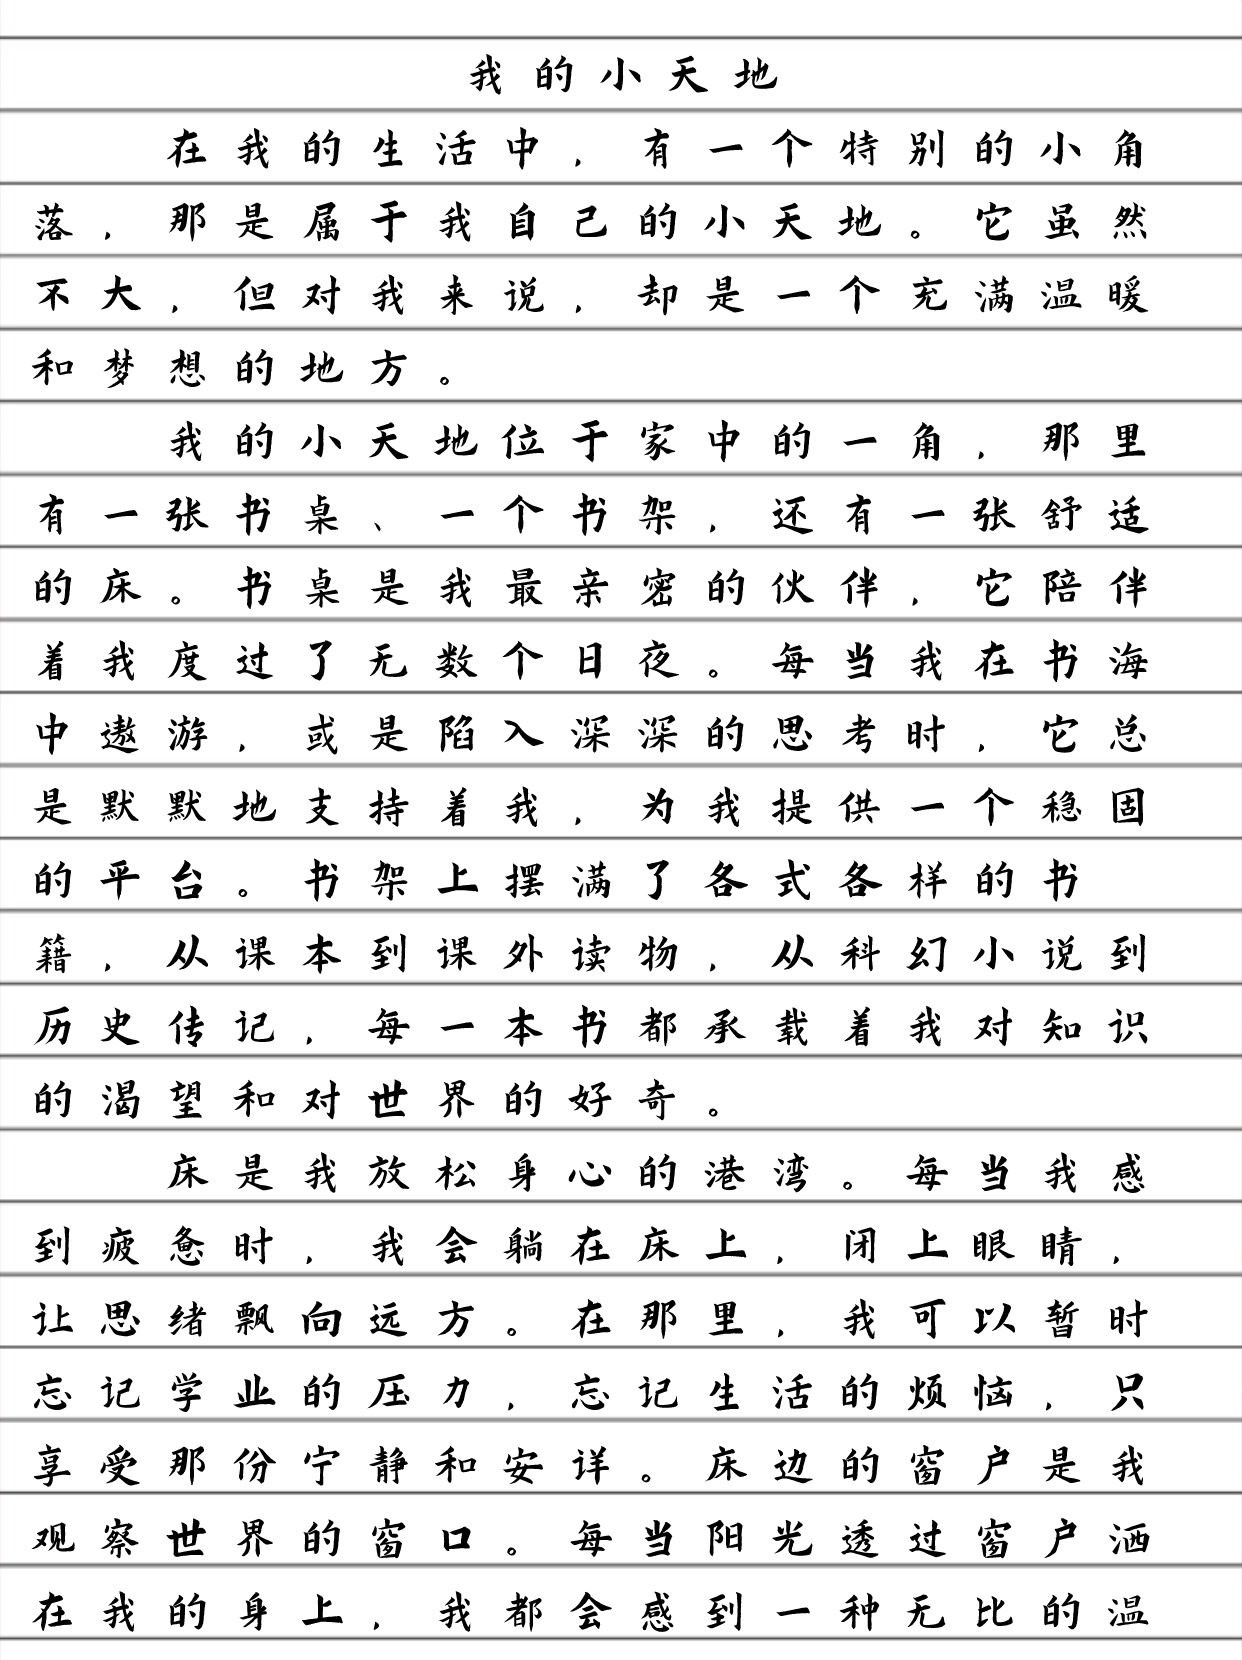 我的小天地
在我的生活中，有一个特别的小角
落，那是属于我自己的小天地。它虽然
不大，但对我来说，却是一个充满温暖
和梦想的地方。
我的小天地位于家中的一角，那里
有一张书桌、一个书架，还有一张舒适
的床。书桌是我最亲密的伙伴，它陪伴
着我度过了无数个日夜。每当我在书海
中遨游，或是陷入深深的思考时，它总
是默默地支持着我，为我提供一个稳固
的平台。书架上摆满了各式各样的书
籍，从课本到课外读物，从科幻小说到
历史传记，每一本书都承载着我对知识
的渴望和对世界的好奇。
床是我放松身心的港湾。每当我感
到疲惫时，我会躺在床上，闭上眼睛，
让思绪飘向远方。在那里，我可以暂时
忘记学业的压力，忘记生活的烦恼，只
享受那份宁静和安详。床边的窗户是我
观察世界的窗口。每当阳光透过窗户洒
在我的身上，我都会感到一种无比的温